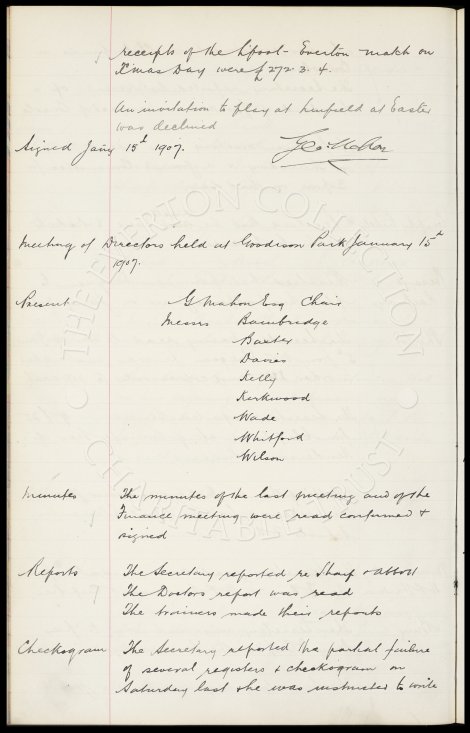 receipts of the L'pool - Everton match on
X'mas Day were £272. 3. 4.
An invitation to play at Linfield at Easter
was declined
Signed Jany 15th 1907. Geo. Mahon
Meeting of Directors held at Goodison Park January 15th
1907.
Present G Mahon Esq Chair
Messrs Bainbridge
Baxter
Davies
Kelly
Kirkwood
Wade
Whitford
Wilson
Minutes The minutes of the last meeting and of the
Finance meeting were read confirmed &
signed
Reports The Secretary reported re Sharp & Abbott
The Doctors report was read
The trainers made their reports
Checkogram The Secretary reported the partial failure
of several registers & checkogram on
Saturday last & he was instructed to write
THE EVERTON COLLECTION
CHARITABLE TRUST